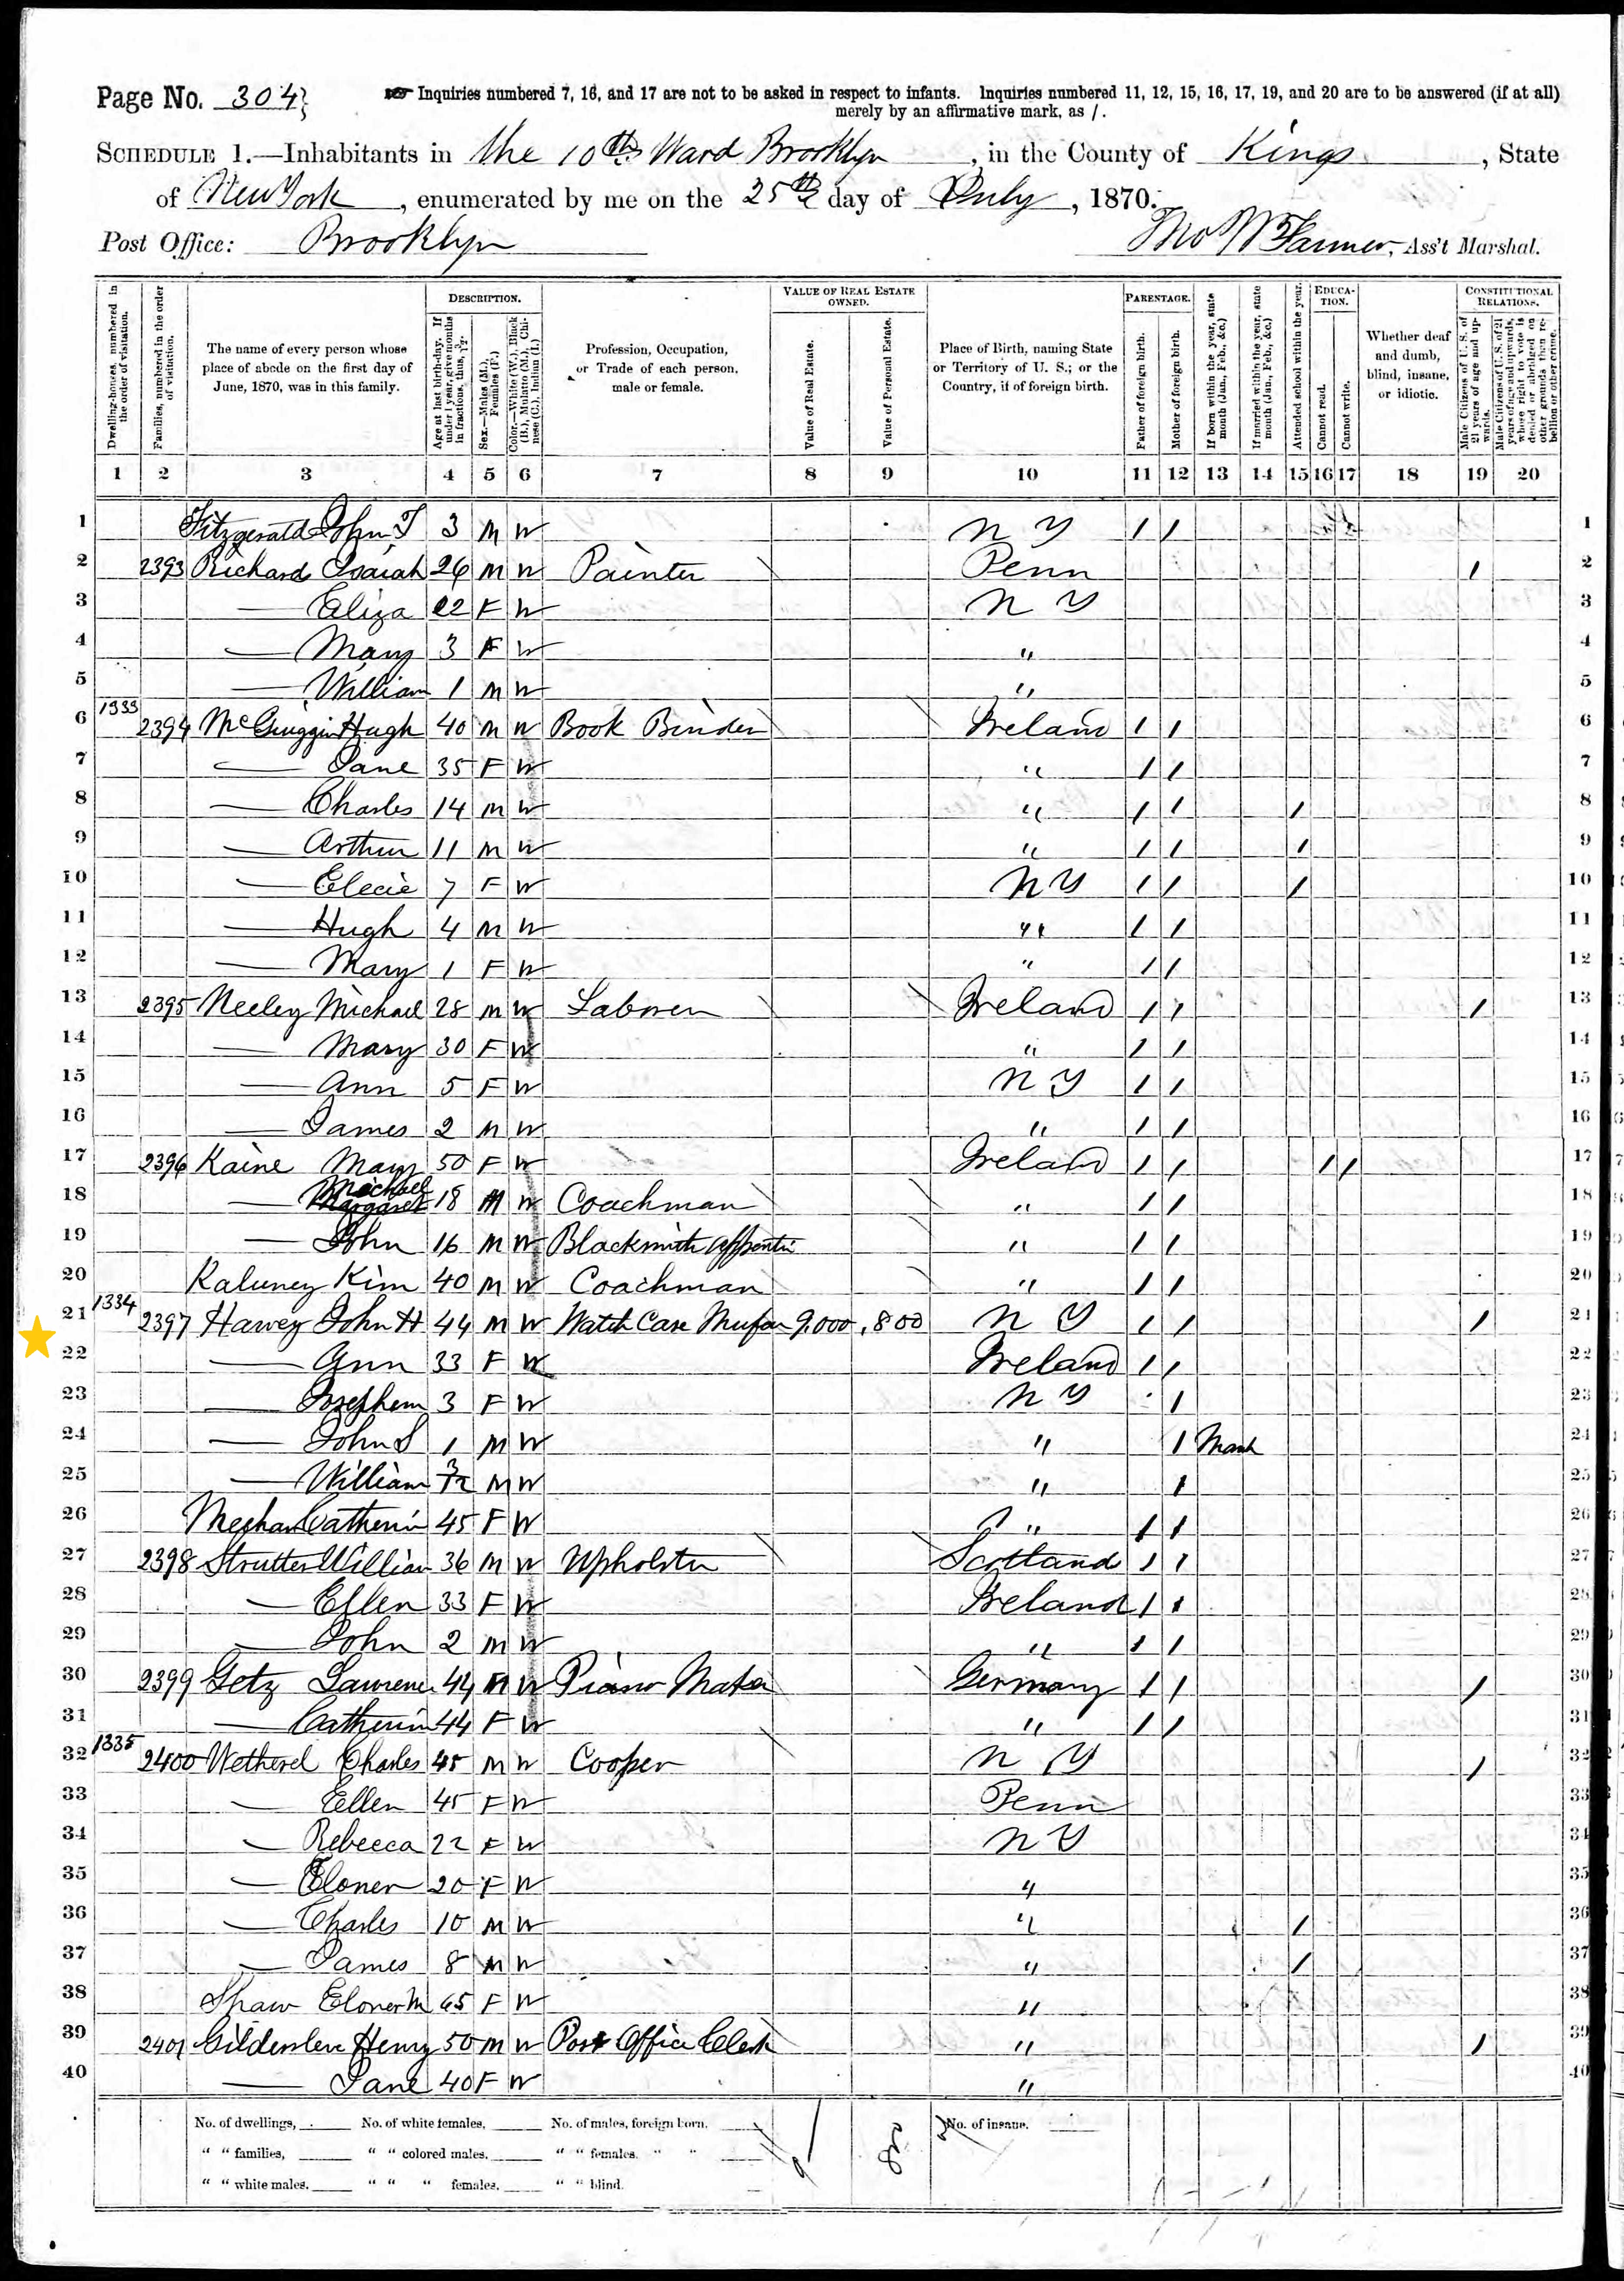 Page No. 304
Inquiries numbered 7, 16, and 17 are not to be asked in respect to infants. Inquiries numbered 11, 12, 15, 16, 17, 19, and 20 are to be answered (if at all)
merely by an affirmative mark, as /.
SCHEDULE 1.—Inhabitants in the 10th Ward Brooklyn, in the County of Kings, State
of New York, enumerated by me on the 25th day of July, 1870.
Post Office: Brooklyn Ass't Marshal.
Dwelling-houses, numbered in the order of visitation.
Families, numbered in the order of visitation.
The name of every person whose place of abode on the first day of June, 1870, was in this family.
DESCRIPTION.
Age at last birth-day. If under 1 year, give months in fractions, thus, 3/12.
Sex.—Males (M.), Females (F.)
Color.—White (W.), Black (B.), Mulatto (M.), Chinese (C.), Indian (I.)
Profession, Occupation, or Trade of each person, male or female.
VALUE OF REAL ESTATE OWNED.
Value of Real Estate.
Value of Personal Estate.
Place of Birth, naming State or Territory of U. S.; or the Country, if of foreign birth.
PARENTAGE.
Father of foreign birth.
Mother of foreign birth.
If born within the year, state month (Jan., Feb., &c.)
If married within the year, state month (Jan., Feb., &c.)
Attended school within the year.
EDUCATION.
Cannot read.
Cannot write.
Whether deaf and dumb, blind, insane, or idiotic.
CONSTITUTIONAL RELATIONS.
Male Citizens of U. S. of 21 years of age and upwards.
Male Citizens of U. S. of 21 years of age and upwards, whose right to vote is denied or abridged on other grounds than rebellion or other crime.
1 2 3 4 5 6 7 8 9 10 11 12 13 14 15 16 17 18 19 20
1 Fitzgerald John T 3 M W N Y / / 1
2 2393 Richard Isaiah 26 M W Painter Penn / 2
3 — Eliza 22 F W N Y 3
4 — Mary 3 F W " 4
5 — William 1 M W " 5
6 1333 2394 McGuggin Hugh 40 M W Book Binder Ireland / / 6
7 — Jane 35 F W " / / 7
8 — Charles 14 M W " / / / 8
9 — Arthur 11 M W " / / / 9
10 — Elecie 7 F W N Y / / / 10
11 — Hugh 4 M W " / / 11
12 — Mary 1 F W " / / 12
13 2395 Neeley Michael 28 M W Laborer Ireland / / / 13
14 — Mary 30 F W " / / 14
15 — Ann 5 F W N Y / / 15
16 — James 2 M W " / / 16
17 2396 Kaine Mary 50 F W Ireland / / / / 17
18 — Michael Margaret 18 M W Coachman " / / 18
19 — John 16 M W Blacksmith " / / 19
20 Kim 40 M W Coachman " / / 20
21 1334 2397 Harvey John H 44 M W Watch Case 9,000 ,800 N Y / / / 21
22 — Ann 33 F W Ireland / / 22
23 — Josephem 3 F W N Y / 23
24 — John S 1 M W " / 24
25 — William 3/12 M W " / 25
26 Catherin 45 F W " / / 26
27 2398 Strutter William 36 M W Upholster Scotland / / 27
28 — Ellen 33 F W Ireland / / 28
29 — John 2 M W " / / 29
30 2399 Getz 44 M W Piano Maker Germany / / / 30
31 — Catherin 44 F W " / / 31
32 1335 2400 Wetherel Charles 45 M W Cooper N Y / 32
33 — Ellen 45 F W Penn 33
34 — Rebecca 22 F W N Y 34
35 — Eloner 20 F W " 35
36 — Charles 10 M W " / 36
37 — James 8 M W " / 37
38 Shaw Eloner M 65 F W " 38
39 2401 Henry 50 M W Post Office Clerk " / 39
40 — Jane 40 F W " 40
No. of dwellings, No. of white females, No. of males, foreign born. No. of insane.
" " families, " " colored males, " " females, " "
" " white males. " " " females, " " blind.